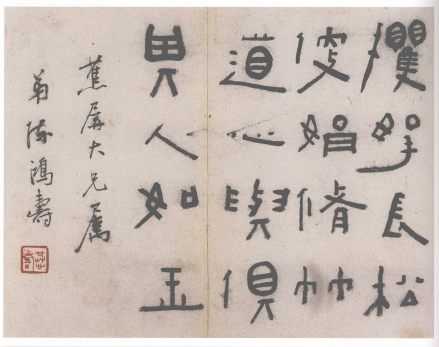 攫拏長松
便娟脩竹
道心與俱
異人如玉
蕉屏大兄屬
弟陳鴻壽